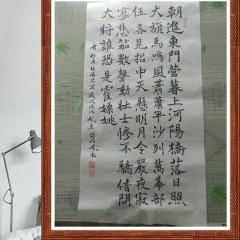 朝進東門營暮上河陽橋落日照
大旗馬鳴風蕭蕭平沙列萬幕部
伍各見招中天懸明月令嚴夜寂
寥悲笳數聲動壯士慘不驕借問
大將誰恐是霍嫖姚